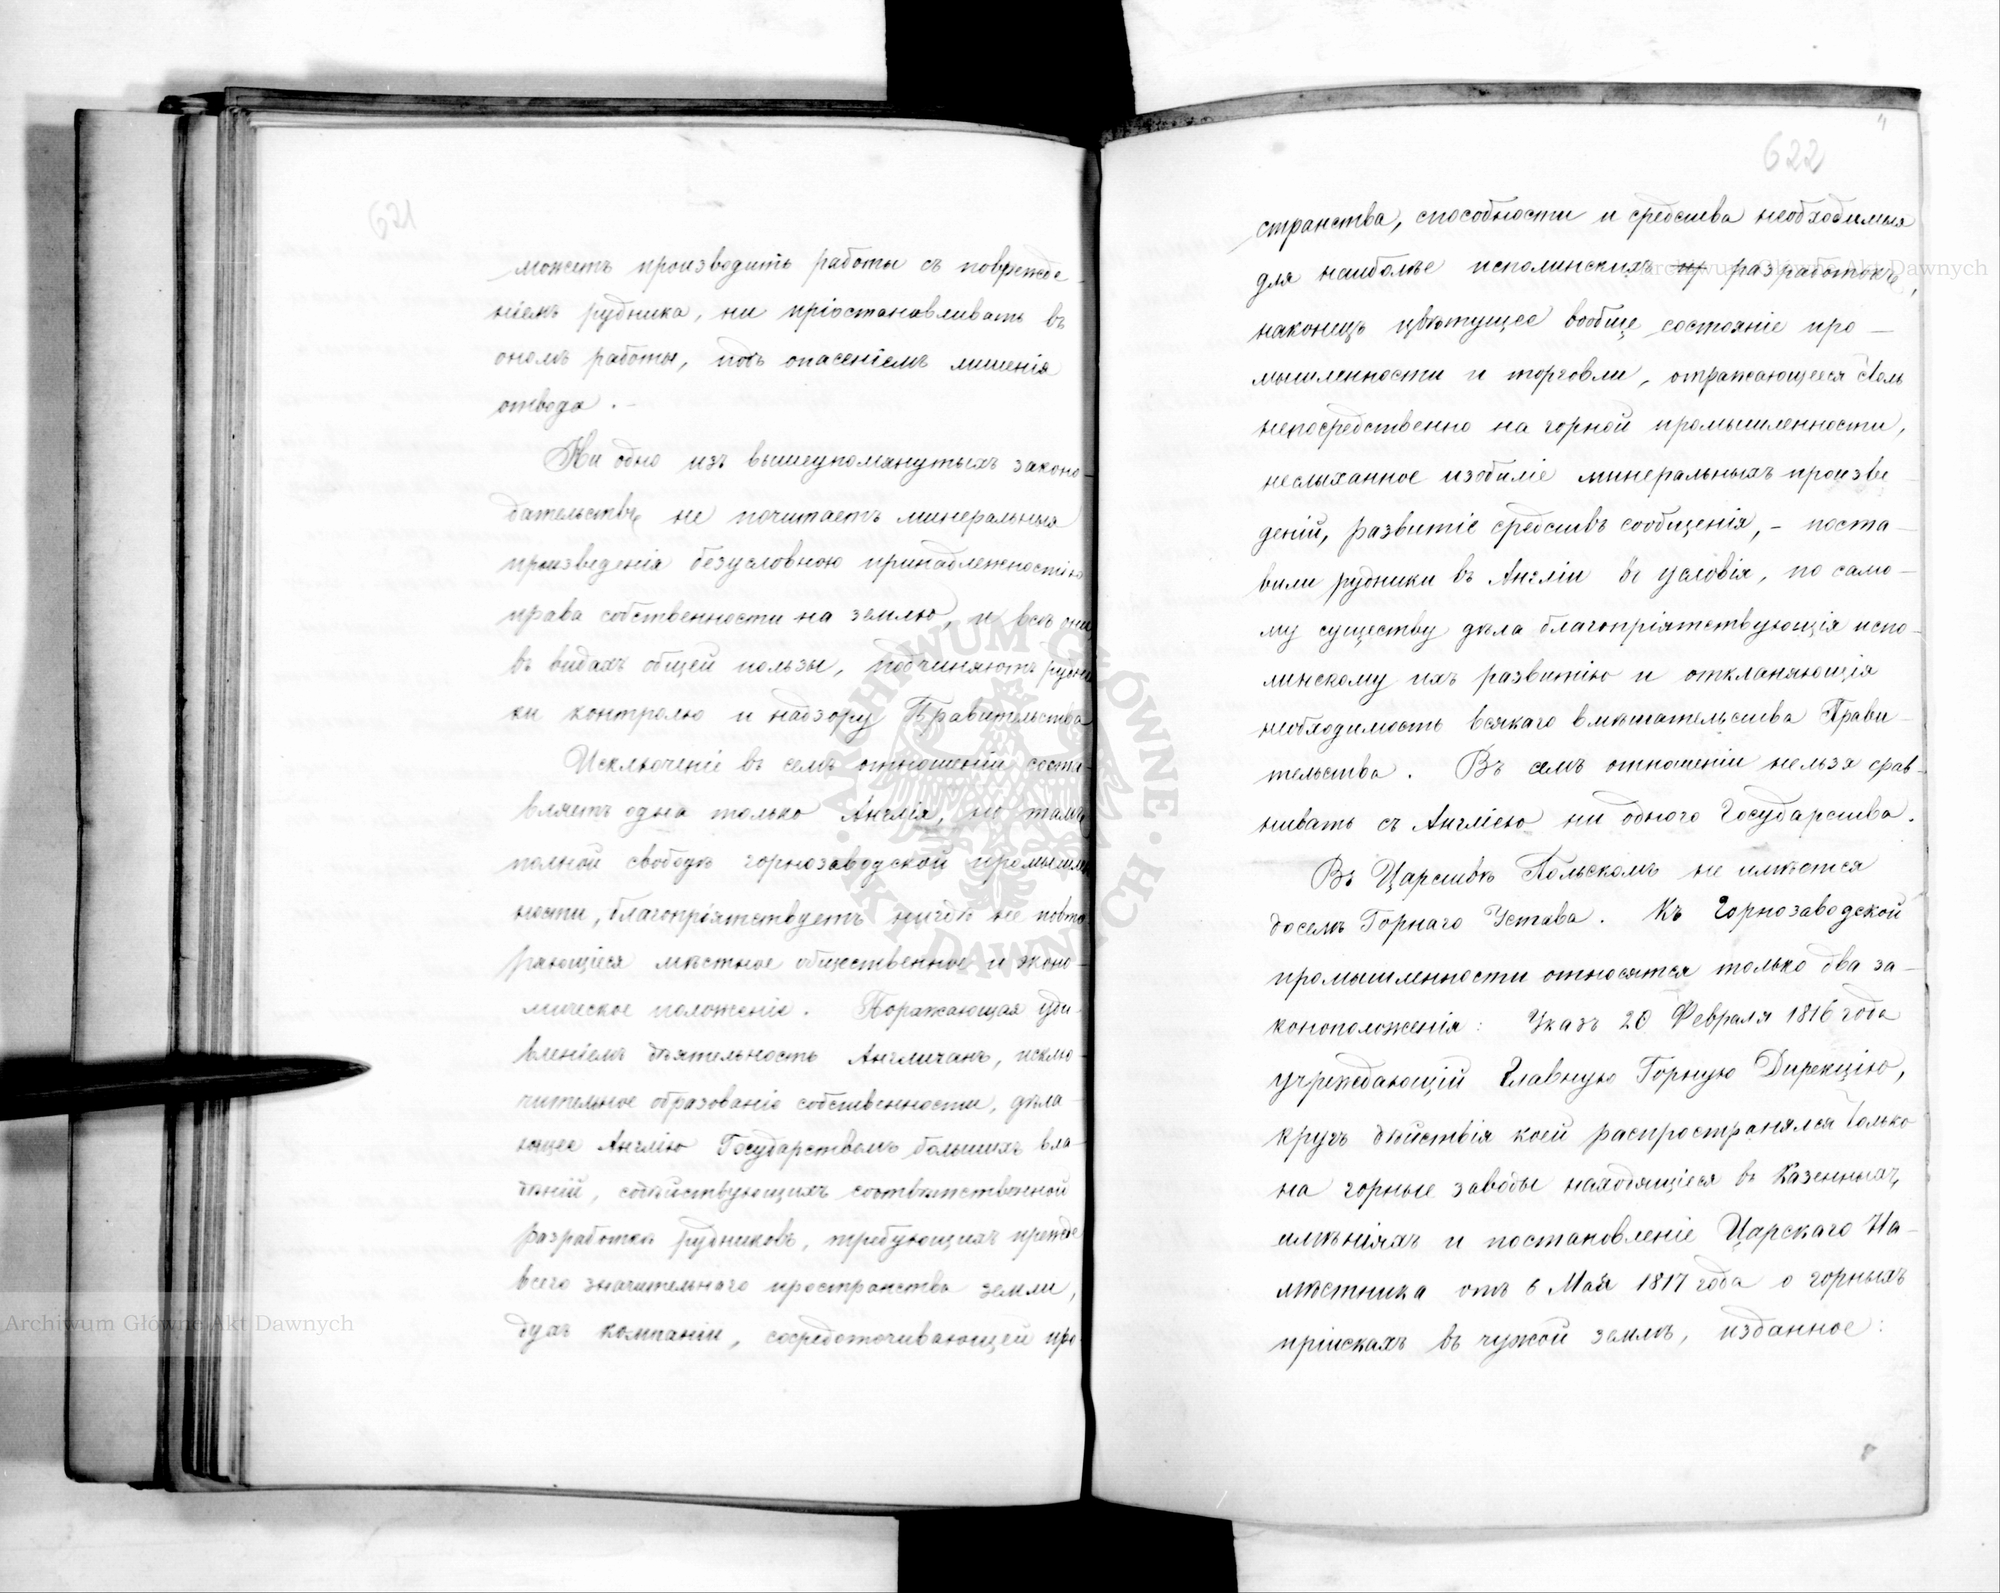 621
можетъ производить работы съ поврежде-
ніемъ рудника, ни пріостановливать въ
ономъ работы, подъ опасеніемъ лишенія
отвода. –
Ни одно изъ вышеупомянутыхъ законо-
дательствъ не почитаетъ минеральныя
произведенія безусловною принадлежностію
права собственности на землю, и всѣ они
въ видахъ общей пользы, подчиняютъ рудни
ки контролю и надзору Правительства
Исключеніе въ семъ отношеніи соста-
вляетъ одна только Англія, но тамъ
полной свободѣ горнозаводской промышлен
ности, благопріятствуетъ нигдѣ не повто
ряющіеся мѣстное общественное и эконо-
мическое положеніе. Поражающая уди-
вленіемъ дѣятельность Англичанъ, исклю-
чительное образованіе собственности, дѣла-
ющее Англію Государствомъ большихъ вла-
дѣній, содѣйствующихъ соотвѣтственной
разработкѣ рудниковъ, требующихъ прежде
всего значительнаго пространства земли,
духъ компаніи, сосредоточивающей про-
622
странства, способности и средства необходимыя
для наиболѣе исполинскихъ разработокъ,
наконецъ цвѣтущее вообще состояніе про-
мышленности и торговли, отражающееся столь
непосредственно на горной промышленности,
неслыханное изобиліе минеральныхъ произве
деній, развитіе средствъ сообщенія, – поста-
вили рудники въ Англіи въ условія, по само-
му существу дѣла благопріятствующія испо-
линскому ихъ развитію и откланяющія
необходимость всякаго вмѣшательства Прави-
тельства. Въ семъ отношеніи нельзя срав-
нивать съ Англіею ни одного Государства.
Въ Царствѣ Польскомъ не имѣется
досемъ Горнаго Устава. Къ Горнозаводской
промышленности относятся только два за-
коноположенія: Указъ 20 Февраля 1816 года
учреждающій Главную Горную Дирекцію,
кругъ дѣйствія коей распространялся только
на горные заводы находящіеся въ Казенныхъ
имѣніяхъ и постановленіе Царскаго На-
мѣстника отъ 6 Мая 1817 года о горныхъ
пріискахъ въ чужой землѣ, изданное:
8
Archiwum Główne Akt Dawnych
Archiwum Główne Akt Dawnych
ARCHIWUM GŁÓWNE AKT DAWNYCH